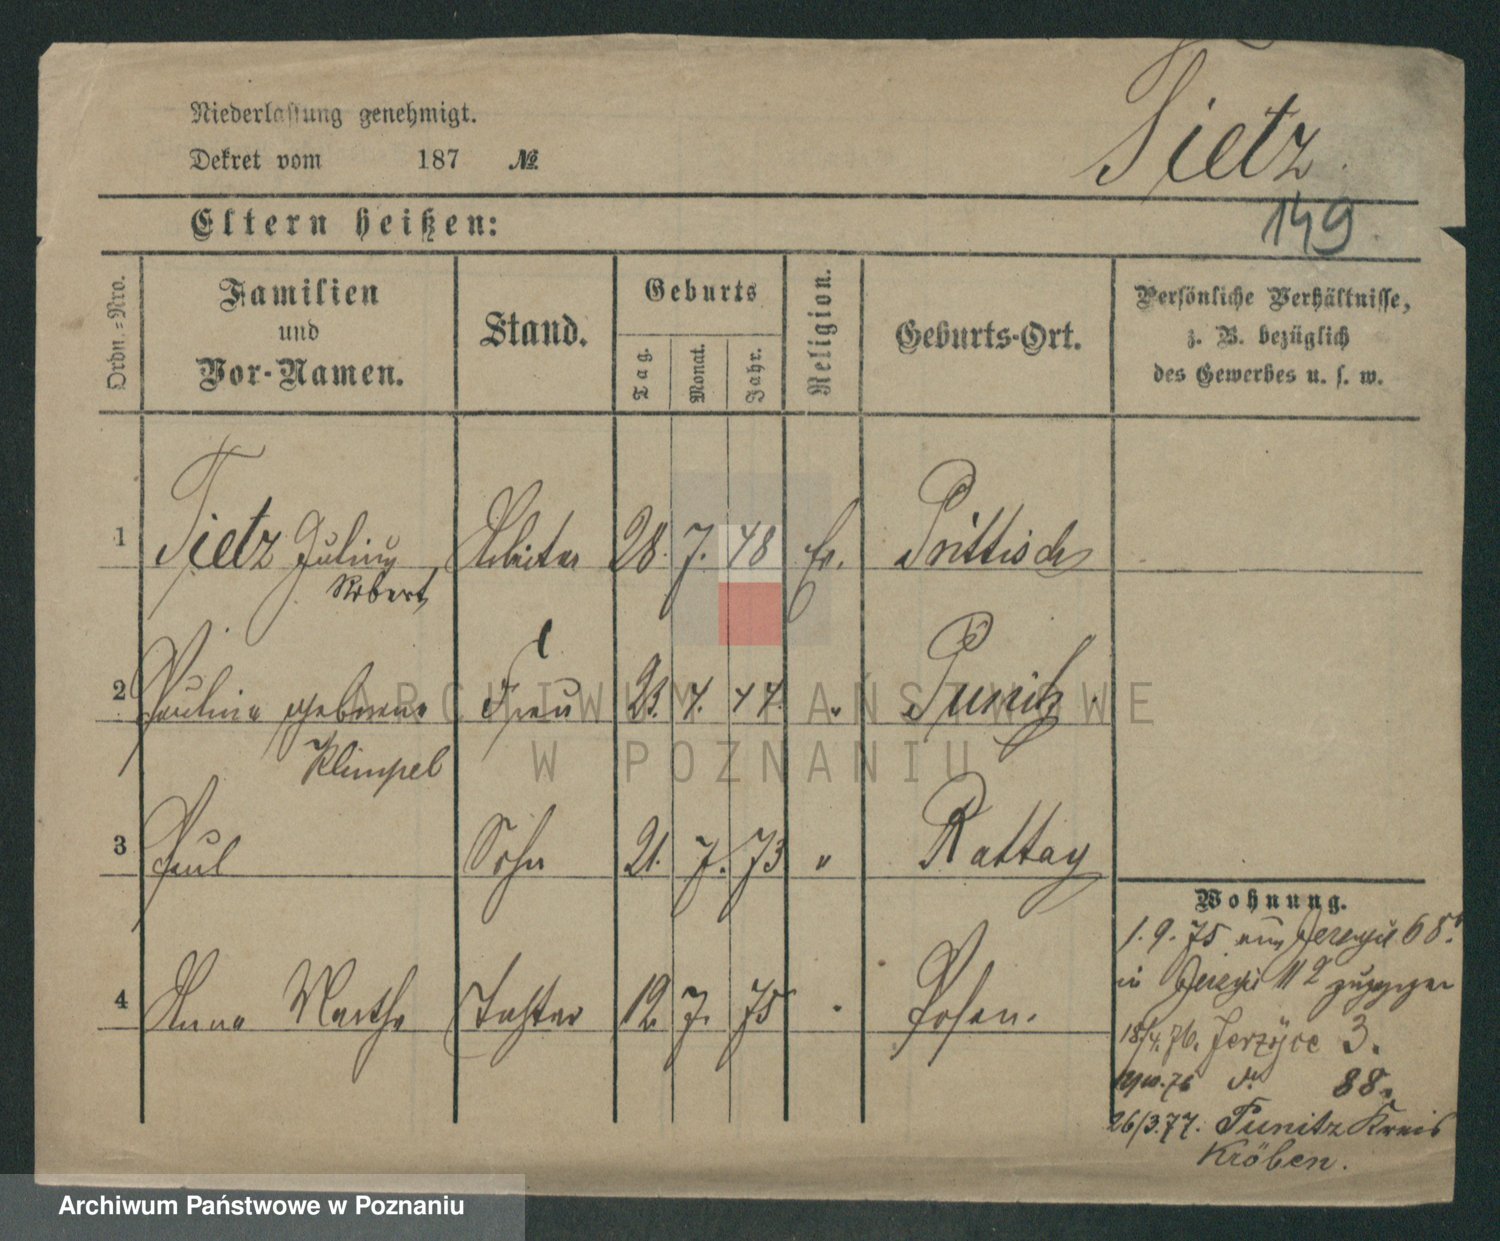 Tietz.
Niederlassung genehmigt.
Dekret vom 187 №
149.
Eltern heißen:
Ordn.=Nro.
Familien und Vor-Namen.
Stand.
Geburts
Tag.
Monat.
Jahr.
Religion.
Geburts-Ort.
Persönliche Verhältnisse,
z. B. bezüglich
des Gewerbes u. s. w.
1 Tietz Julius Arbeiter 28. 7. 48 Ev. Prittisch
Robert
2 Pauline geborene Frau 23. 4. 47. " Punitz.
Klimpel
3 Paul Sohn 21. 7. 73 " Rattay
4 Anna Martha Tochter 12. 7. 75 " Posen.
Wohnung.
1. 9. 75 aus 68
in 112 zugezogen
18/4. 76. Jerzyce 3.
76 do 88.
26/3.77. Punitz Kreis
Kröben.
ARCHIWUM PAŃSTWOWE
W POZNANIU
Archiwum Państwowe w Poznaniu